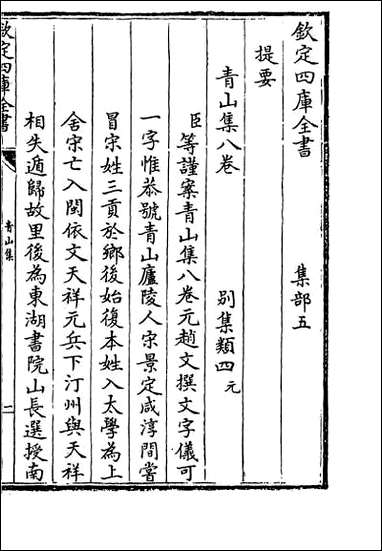 欽定四庫全書　集部五
提要
青山集八卷　別集類四元
臣等謹案青山集八卷元趙文撰文字儀可
一字惟恭號青山廬陵人宋景定咸淳間嘗
冒宋姓三貢於鄉後始復本姓入太學為上
舍宋亡入閩依文天祥元兵下汀州與天祥
相失遁歸故里後為東湖書院山長選授南
欽定四庫全書
青山集
一